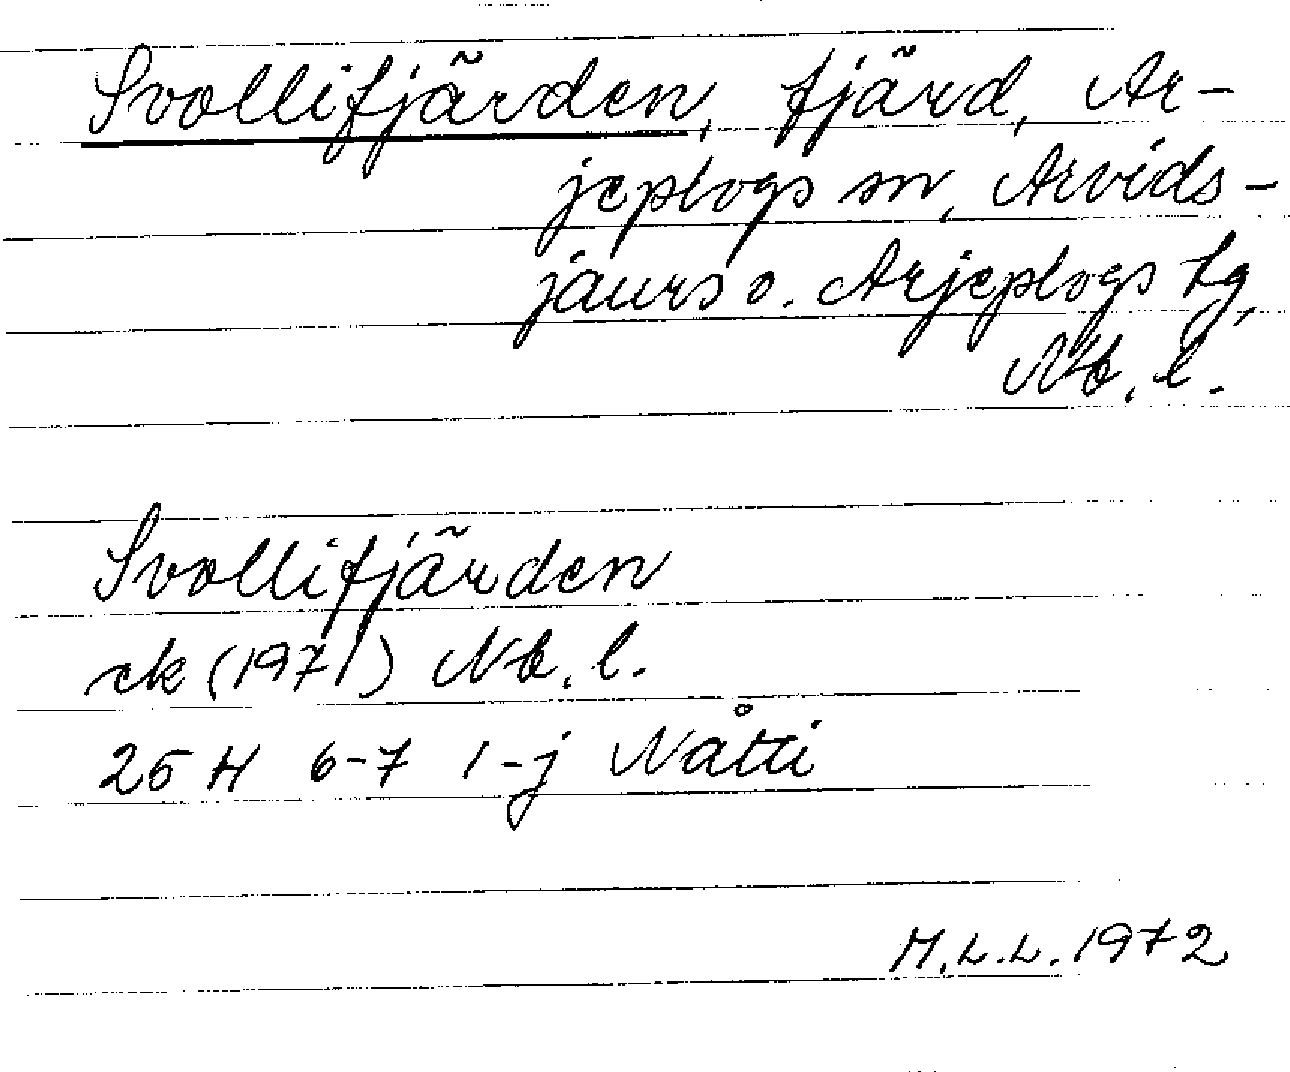 Svollifjärden, fjärd, Ar-
jeplogs sn, Arvids-
jaurs o. Arjeplogs tg,
Nb. l.
Svollifjärden
ek (1971) Nb. l.
25 H 6-7 i-j Nåtti
M.L.L. 1972